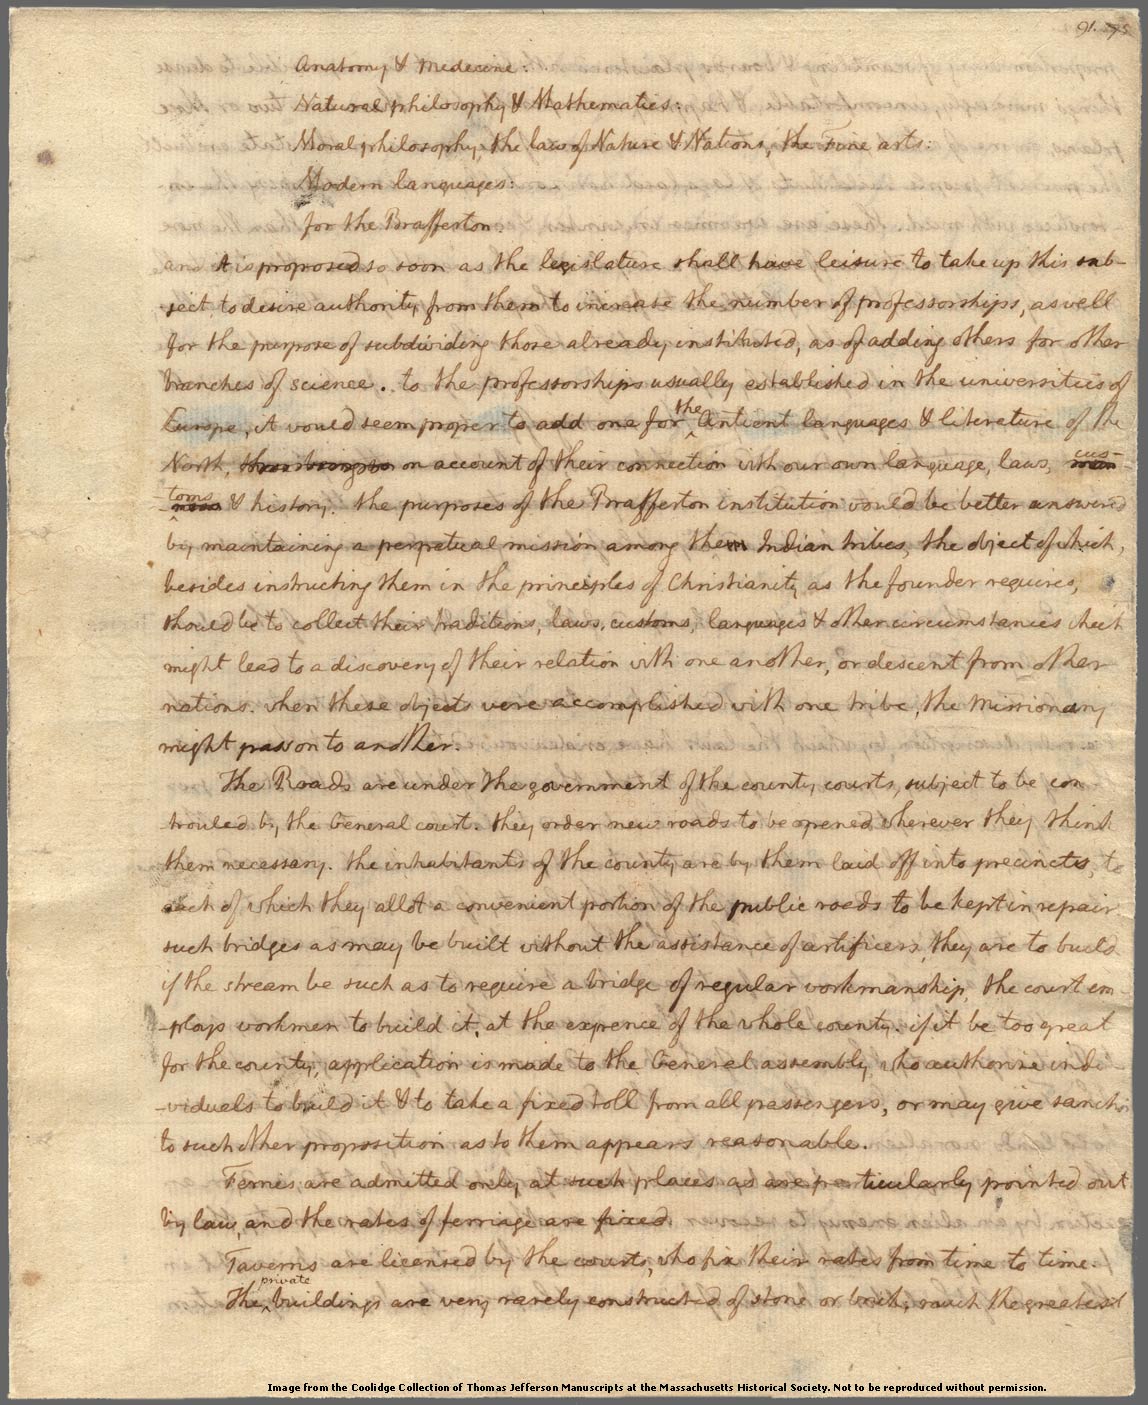 91. 75
Anatomy & Medecine:
Natural philosophy & Mathematics:
Moral philosophy, the law of Nature & Nations, the Fine arts:
Modern languages:
for the Brafferton.
and it is proposed so soon as the legislature shall have leisure to take up this sub-
-ject to desire authority from them to increase the number of professorships, as well
for the purpose of subdividing those already instituted, as of adding others for other
branches of science. to the professorships usually established in the universities of
Europe, it would seem proper to add one for the Antient languages & literature of the
North, on account of their connection with our own language, laws, cus-
-toms & history. the purposes of the Brafferton institution would be better answered
by maintaining a perpetual mission among the Indian tribes, the object of which,
besides instructing them in the principles of Christianity as the founder requires,
should be to collect their traditions, laws, customs, languages & other circumstances which
might lead to a discovery of their relation with one another, or descent from other
nations. when these objects were accomplished with one tribe, the missionary
might pass on to another.
The Roads are under the government of the county courts, subject to be con-
-trouled by the General court. they order new roads to be opened wherever they think
them necessary. the inhabitants of the county are by them laid off into precincts, to
each of which they allot a convenient portion of the public roads to be kept in repair.
such bridges as may be built without the assistance of artificers, they are to build.
if the stream be such as to require a bridge of regular workmanship, the court em-
-ploys workmen to build it, at the expence of the whole county. if it be too great
for the county, application is made to the General assembly, who authorize indi-
-viduals to build it & to take a fixed toll from all passengers, or may give sanction
to such other proposition as to them appears reasonable.
Ferries are admitted only at such places as are particularly pointed out
by law, and the rates of ferriage are fixed.
Taverns are licensed by the courts, who fix their rates from time to time.
The private buildings are very rarely constructed of stone or brick; much the greatest
Image from the Coolidge Collection of Thomas Jefferson Manuscripts at the Massachusetts Historical Society. Not to be reproduced without permission.